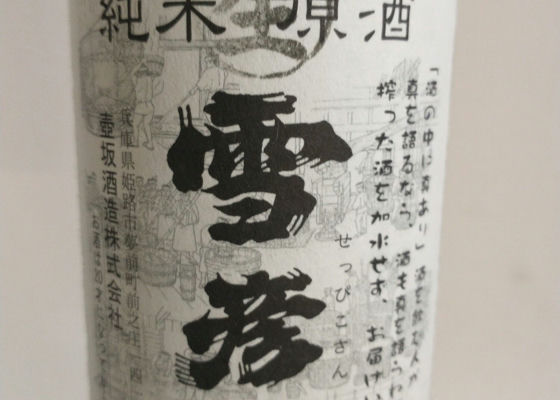 純米
生
原酒
「酒の中に真あり」酒を飲む人が
真を語るなら、酒も真を語らね
搾った酒を加水せず、お届けい
せっぴこさん
雪彦
兵庫県姫路市夢前町前之庄一四
壺坂酒造株式会社
お酒は20才になってか